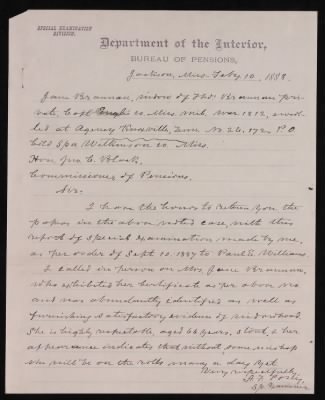 SPECIAL EXAMINATION
DIVISION.
Department of the Interior,
BUREAU OF PENSIONS,
Jackson, Miss. Feby. 10, 1888.
Jane Brannan, widow of Thos. Brannan pri-
vate, Capt co Miss. mil. war 1812, enroll-
ed at Agency Knoxville, Tenn No 26.172, P.O
Cold Spa Wilkinson co Miss.
Hon. Jno. C. Black,
Commissioner of Pensions.
Sir:
I have the honor to return you the
papers in the above noted case, with this
report of special examination made by me,
as per order of Sept. 10. 1887 to Paul E. Williams.
I called in person on Mrs. Jane Brannan,
who exhibited her certificate as per above no
and was abundantly identified as well as
furnishing satisfactory evidence of widowhood.
She is highly reputable, aged 68 years, stout & her
appearance indicates that without some mishap
she will be on the rolls many a day yet.
Very respectfully,
Sp. Examiner